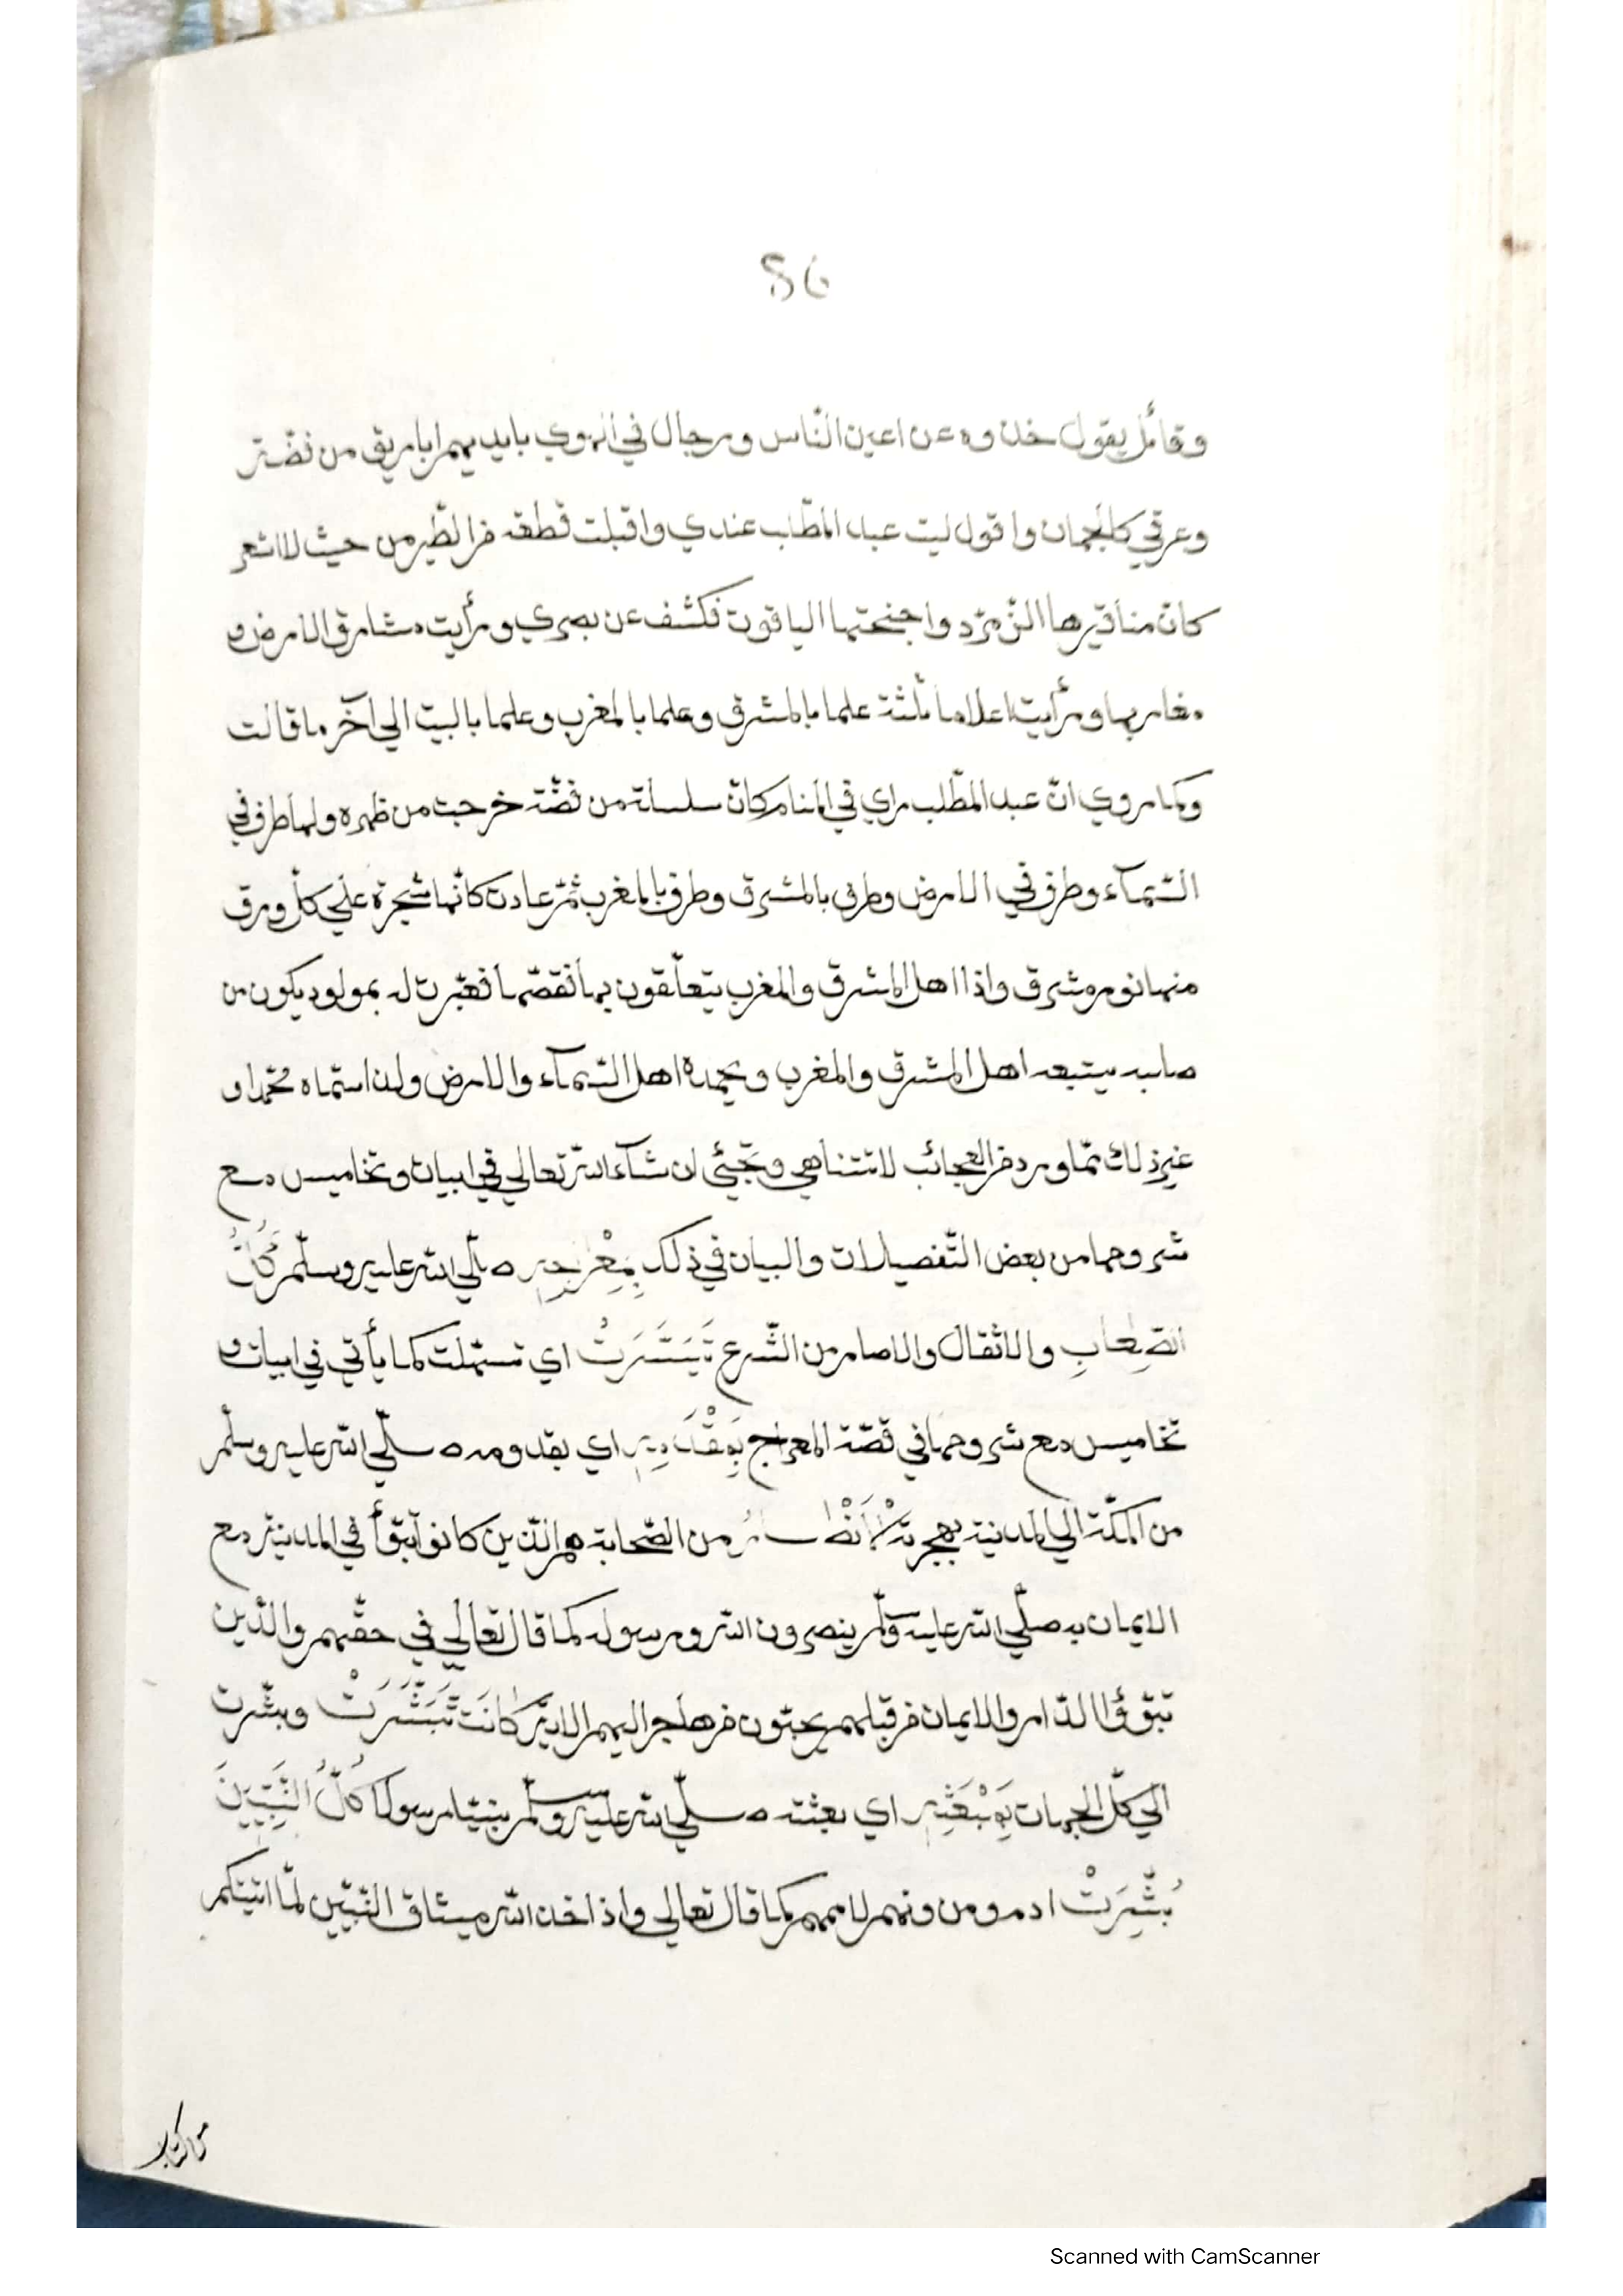 86
وقائل يقول خذوه عن اعين النّاس ورجال في الهوي بايديهم اباريق من فضّة
وعرقي كالجمان واقول ليت عبد المطّلب عندي واقبلت قطعة من الطّير من حيث لا اشعر
كانّ مناقيرها الزّمرّد واجنحتها الياقوت فكشف عن بصري ورأيت مشارق الارض و
مغاربها ورأيت اعلاما ثلثة علما بالمشرق وعلما بالمغرب وعلما بالبيت الي آخر ما قالت
وكما روي انّ عبد المطّلب راي في المنام كانّ سلسلة من فضّة خرجت من ظهره ولها طرف في
السّمآء وطرف في الارض وطرف بالمشرق وطرف بالمغرب ثمّ عادت كانّها شجرة علي كلّ ورق
منها نور مشرق واذا اهل المشرق والمغرب يتعلّقون بها فقصّها فعبّرت له بمولود يكون من
صلبه يتبعه اهل المشرق والمغرب ويحمده اهل السّمآء والارض ولذا سمّاه محمّدا و
غير ذلك ممّا ورد من العجائب لا تتناهي وتجيئي ان شآء الله تعالي في ابيات وتخاميس مع
شروحها من بعض التّفصيلات والبيان في ذلك بِمِعْرَاجِهِ صلّي الله عليه وسلّم كُلُّ
الصِّعَابِ والاثقال والاصار من الشّرع تَيَسَّرَتْ اي تسهّلت كما يأتي في ابيات و
تخاميس مع شروحها في قصّة المعراج بِمَقْدَمِهِ اي بقدومه صلّي الله عليه وسلّم
من المكّة الي المدينة بهجرته الْاَنْصَارُ من الصّحابة هم الّذين كانوا تبوّأ في المدينة مع
الايمان به صلّي الله عليه وسلّم ينصرون الله ورسوله كما قال تعالي في حقّهم والّذين
تبوّؤا الدّار والايمان من قبلهم يحبّون من هاجر اليهم الاية كَانَتْ تَبَشَّرَتْ وبشّرت
الي كلّ الجهات بِمَبْعَثِهِ اي بعثته صلّي الله عليه وسلّم نبيّا رسولا كُلُّ النَّبِيِّينَ
بُشِّرَتْ ادم ومن دونهم لاممهم كما قال تعالي واذ اخذ الله ميثاق النّبيّن لمّا اتيتكم
من كتاب
Scanned with CamScanner